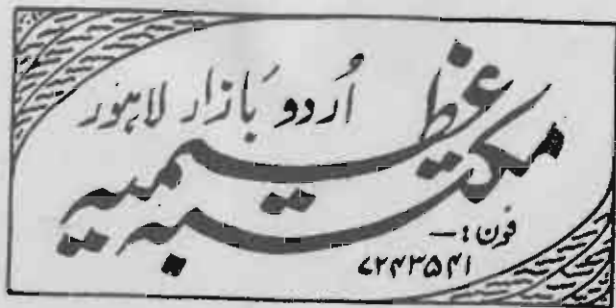 مکتبہ عظیمیہ
اُردو بازار لاہور
فون :—
۷۲۴۳۵۴۱